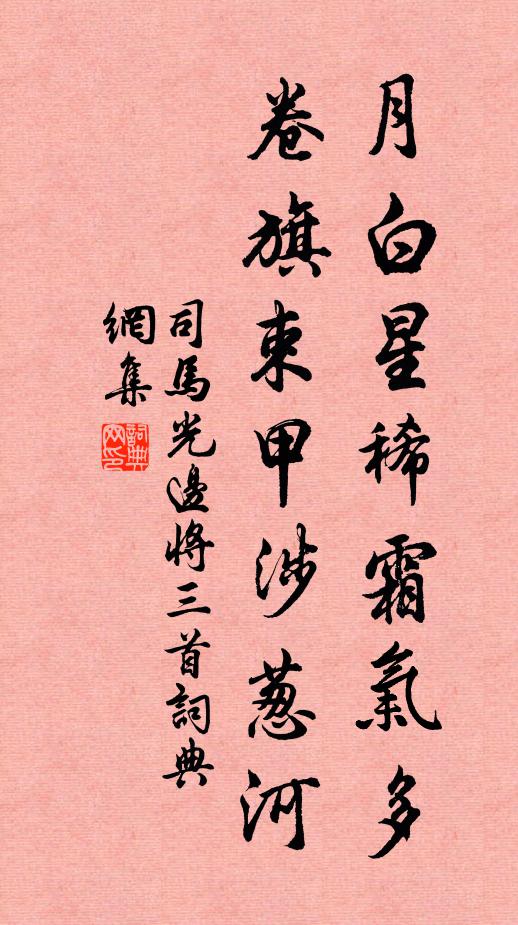 月白星稀霜氣多
卷旗束甲涉葱河
司馬光邊將三首詞典
網集
詞典
网印